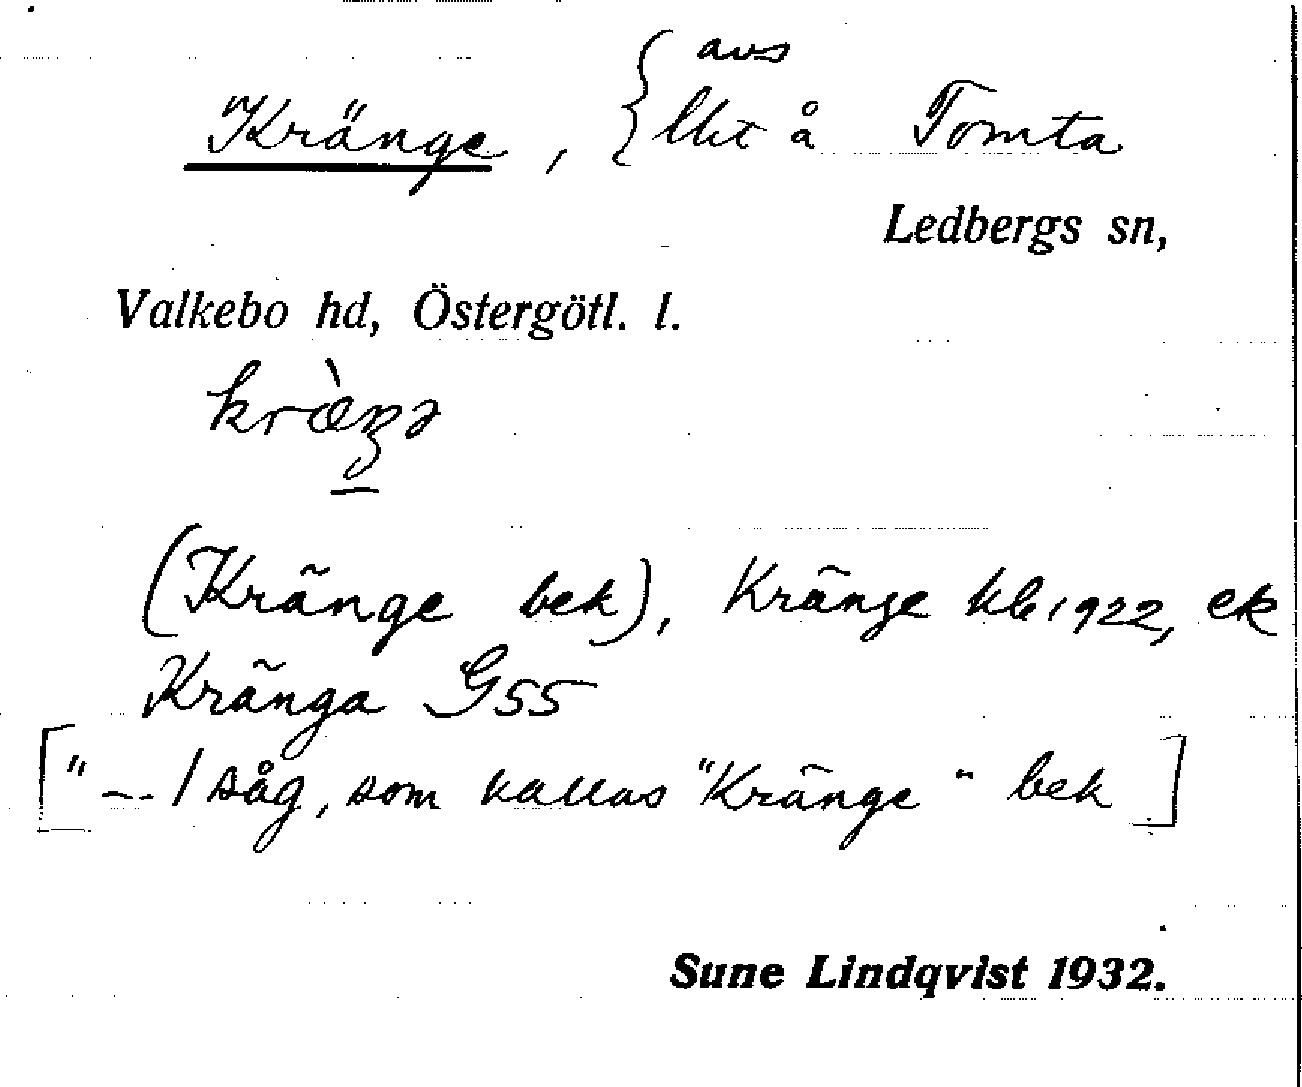 Kränge, { avs
lht å Tomta
Ledbergs sn,
Valkebo hd, Östergötl. l.
(Kränge bek), Kränge kb 1922, ek
Kränga G55
["–-- / såg, som kallas "Kränge" bek]
Sune Lindqvist 1932.